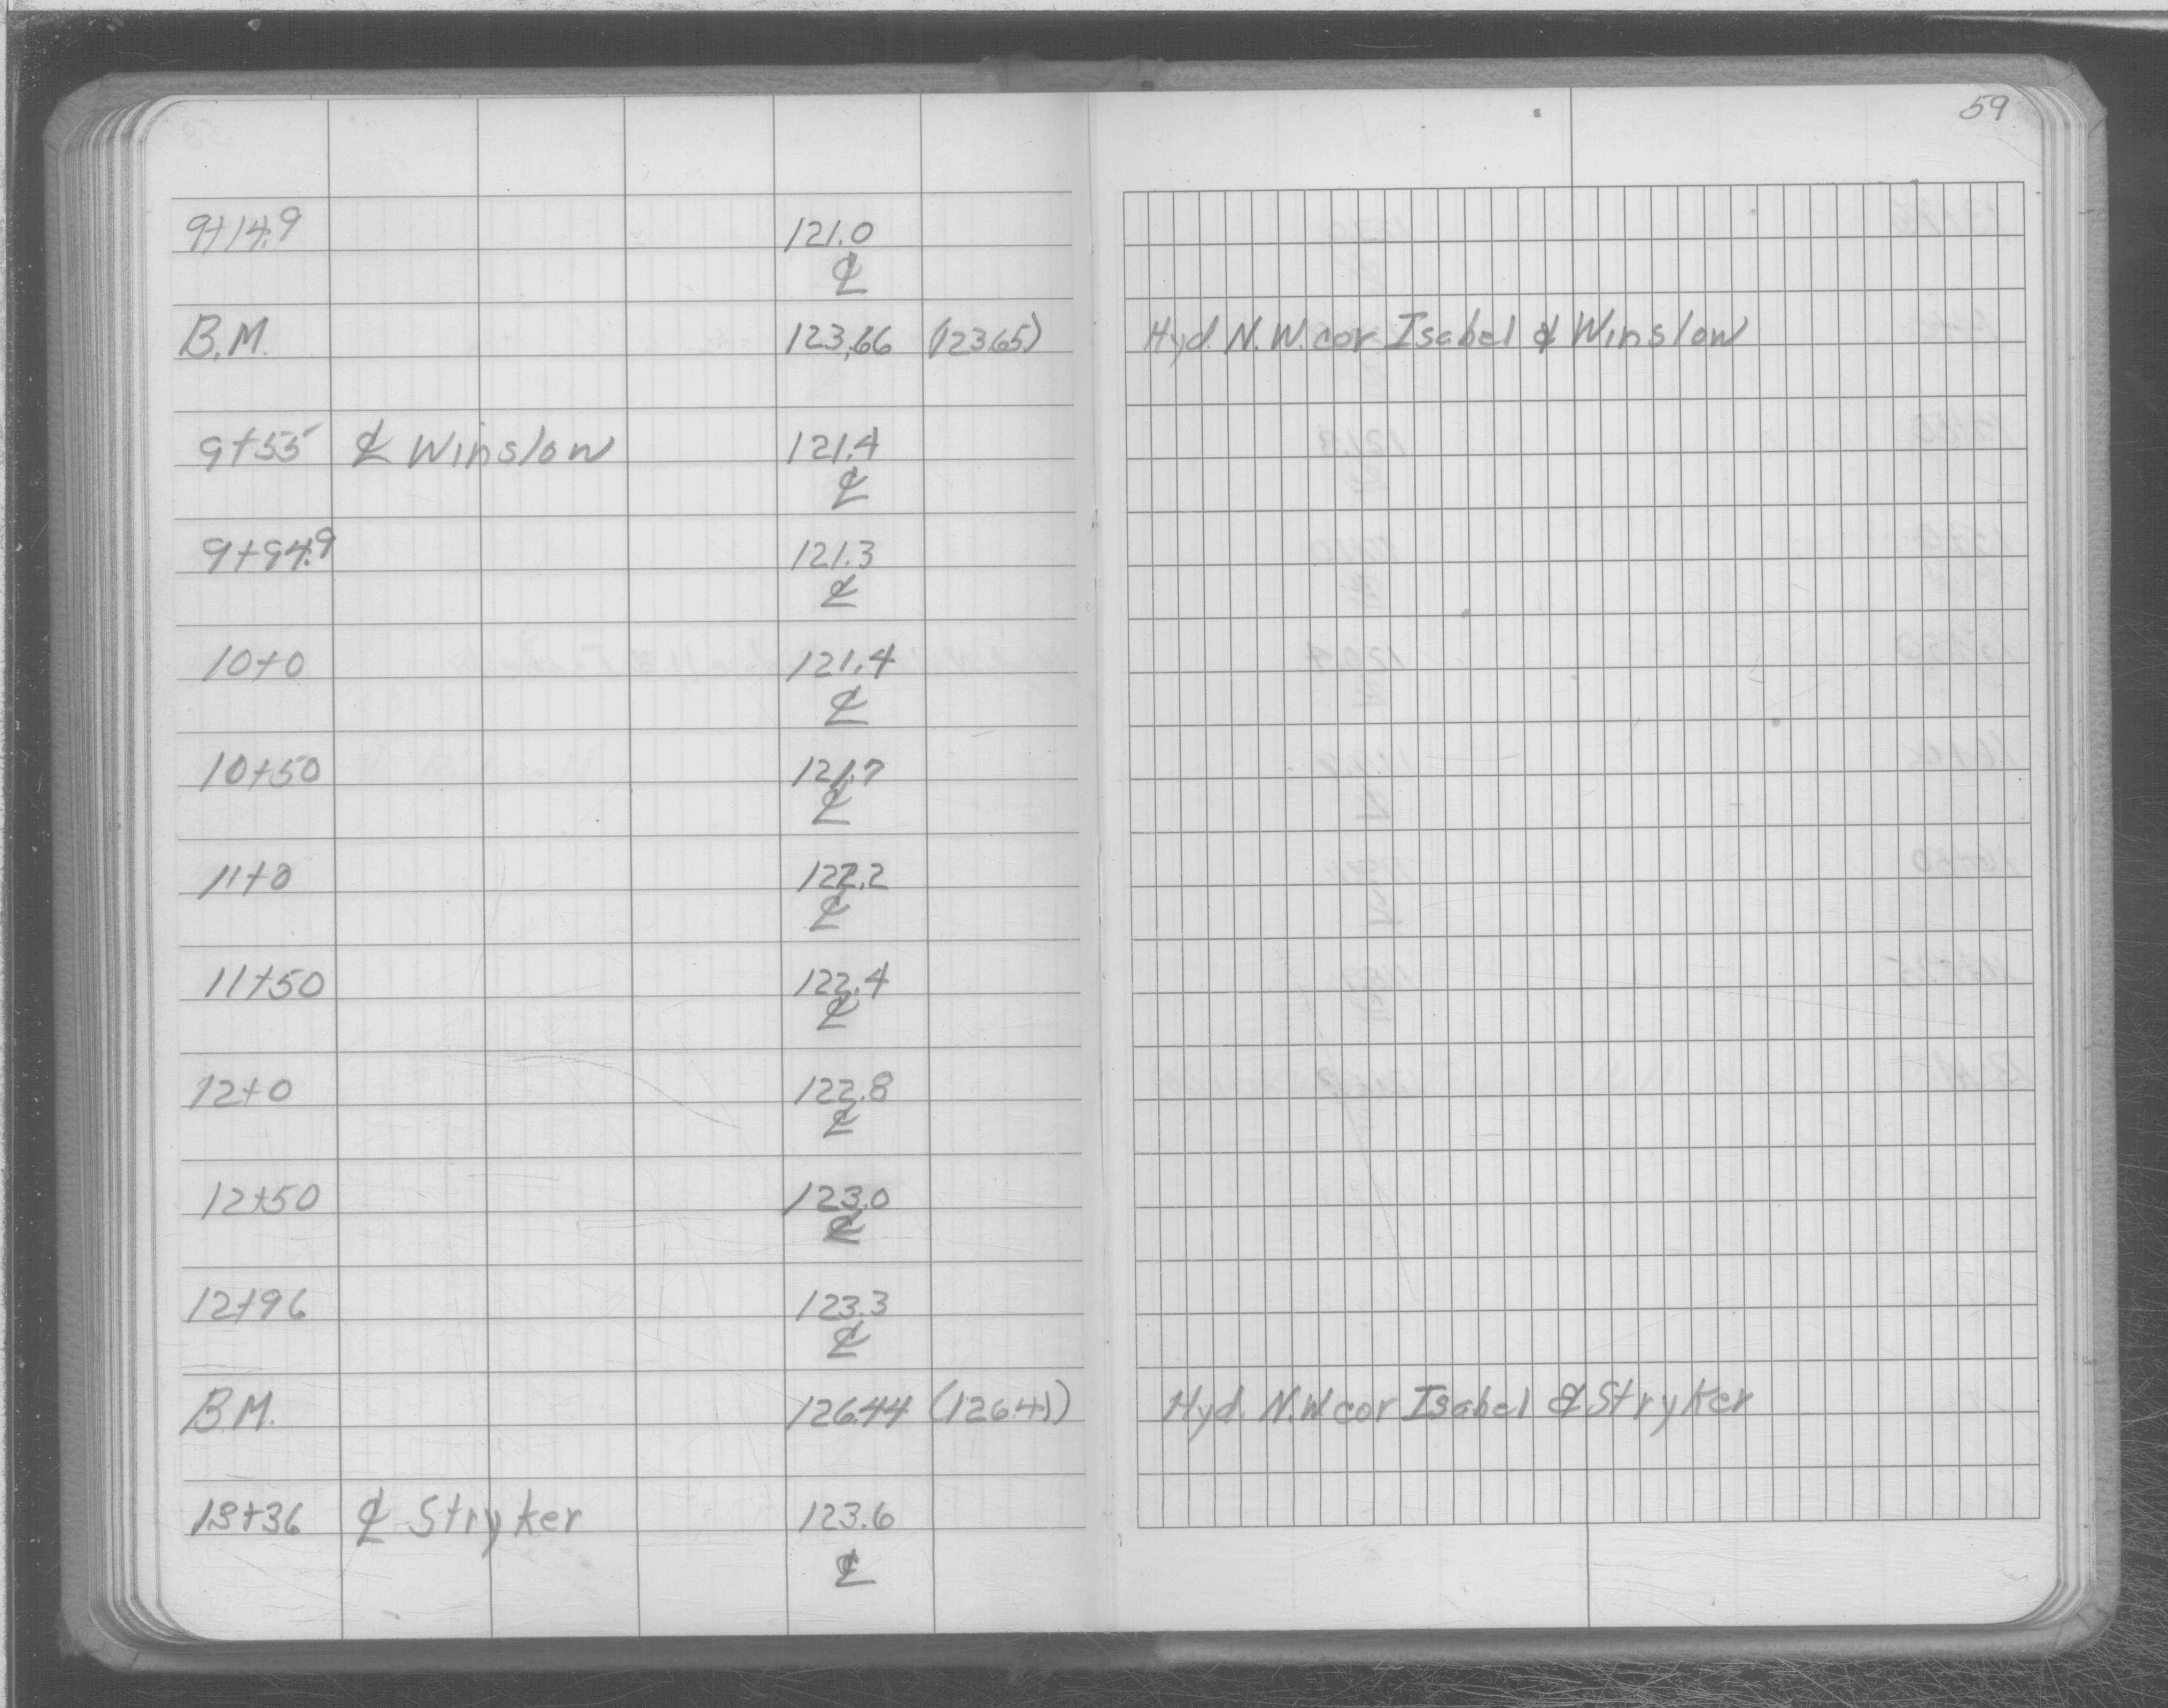 59
9+14.9 121.0
℄
B.M. 123.66 (123.65) Hyd. N.W. cor. Isabel & Winslow
9+55 ℄ Winslow 121.4
℄
9+94.9 121.3
℄
10+0 121.4
℄
10+50 121.7
℄
11+0 122.2
℄
11+50 122.4
℄
12+0 122.8
℄
12+50 123.0
℄
12+96 123.3
℄
B.M. 126.44 (126.41) Hyd. N.W. cor Isabel & Stryker
13+36 ℄ Stryker 123.6
℄